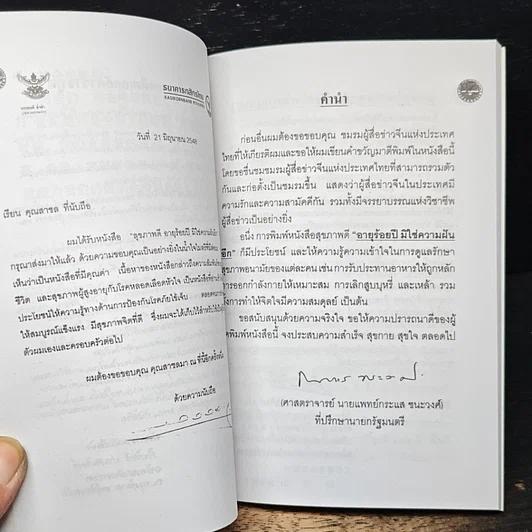 ธนาคารกสิกรไทย
KASIKORNBANK
วันที่ 21 มิถุนายน 2548
เรียน คุณสาชล ที่นับถือ
ผมได้รับหนังสือ "สุขภาพดี อายุร้อยปี มิใช่ความฝัน
กรุณาส่งมาให้แล้ว ด้วยความขอบคุณเป็นอย่างยิ่งในน้ำใจไมตรี
เห็นว่าเป็นหนังสือที่มีคุณค่า เนื้อหาของหนังสือกล่าวถึงความ
ชีวิต และสุขภาพผู้สูงอายุกับโรคหลอดเลือดหัวใจ เป็นหนังสือ
ประโยชน์ให้ความรู้ทางด้านการป้องกันโรคภัยไข้เจ็บ ตลอดจน
ให้สมบูรณ์แข็งแรง มีสุขภาพจิตที่ดี ซึ่งผมจะได้เก็บไว้
ตัวผมเองและครอบครัวต่อไป
ผมต้องขอขอบคุณ คุณสาชลมา ณ ที่นี้อีกครั้งหนึ่ง
ด้วยความนับถือ
คำนำ
ก่อนอื่นผมต้องขอขอบคุณ ชมรมผู้สื่อข่าวจีนแห่งประเทศ
ไทยที่ให้เกียรติผมและขอให้ผมเขียนคำขวัญมาตีพิมพ์ในหนังสือนี้
โดยขอชื่นชมชมรมผู้สื่อข่าวจีนแห่งประเทศไทยที่สามารถรวมตัว
กันและก่อตั้งเป็นชมรมขึ้น แสดงว่าผู้สื่อข่าวจีนในประเทศมี
ความรักและความสามัคคีกัน รวมทั้งมีจรรยาบรรณแห่งวิชาชีพ
ผู้สื่อข่าวเป็นอย่างยิ่ง
อนึ่ง การพิมพ์หนังสือสุขภาพดี "อายุร้อยปี มิใช่ความฝัน
อีก" ก็มีประโยชน์ และให้ความรู้ความเข้าใจในการดูแลรักษา
สุขภาพอนามัยของแต่ละคน เช่น การรับประทานอาหารให้ถูกหลัก
การออกกำลังกายให้เหมาะสม การเลิกสูบบุหรี่ และเหล้า รวม
ถึงการทำให้จิตใจมีความสมดุลย์ เป็นต้น
ขอสนับสนุนด้วยความจริงใจ ขอให้ความปรารถนาดีของผู้
จัดพิมพ์หนังสือนี้ จงประสบความสำเร็จ สุขกาย สุขใจ ตลอดไป
(ศาสตราจารย์ นายแพทย์กระแส ชนะวงศ์)
ที่ปรึกษานายกรัฐมนตรี